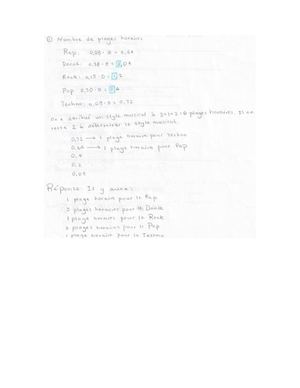 ② Nombre de plages horaires
Rap: 0,08 · 8 = 0,64
Dance: 0,38 · 8 = 3,04
Rock: 0,15 · 8 = 1,2
Pop: 0,30 · 8 = 2,4
Techno: 0,09 · 8 = 0,72
On a attribué un style musical à 3+1+2=6 plages horaires. Il en
reste 2 à déterminer le style musical.
0,72 → 1 plage horaire pour Techno
0,64 → 1 plage horaire pour
0,4
0,2
0,04
Réponse: Il y aura:
1 plage horaire pour le Rap
3 plages horaires pour le Dance
1 plage horaire pour le Rock
2 plages horaires pour le Pop
1 plage horaire pour le Techno